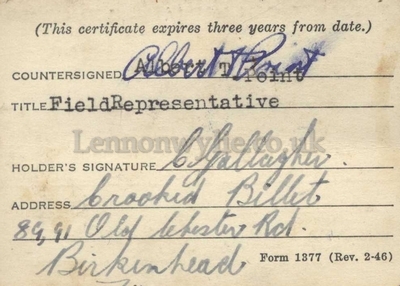 (This certificate expires three years from date.)
COUNTERSIGNED Albert T. Point
Albert T Point
TITLE Field Representative
Lennonwylie.co.uk
HOLDER'S SIGNATURE C. Gallagher.
ADDRESS Crooked Billet
89, 91 Old Chester Rd.
Birkenhead
Form 1377 (Rev. 2-46)